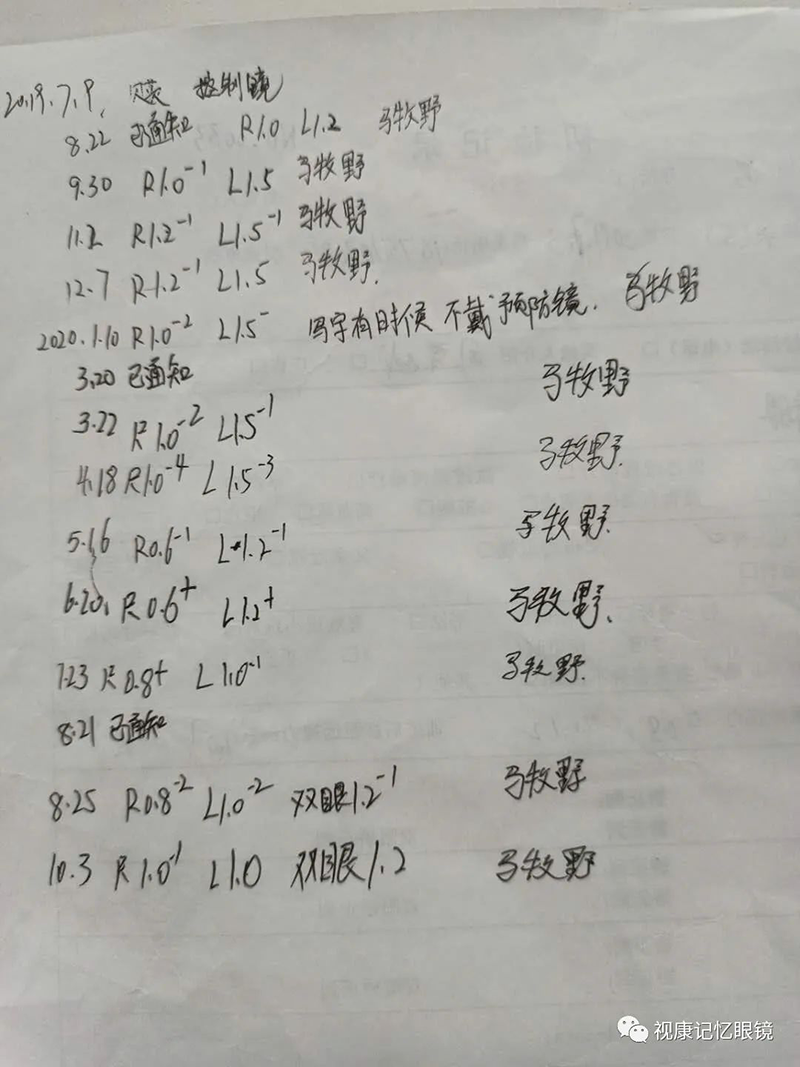 2019.7.9. 贝莱 控制镜
8.22 已通知 R1.0 L1.2 马牧野
9.30 R1.0⁻¹ L1.5 马牧野
11.2 R1.2⁻¹ L1.5⁻¹ 马牧野
12.7 R1.2⁻¹ L1.5 马牧野.
2020.1.10 R1.0⁻² L1.5⁻ 写字有时候不戴预防镜. 马牧野
3.20 已通知 马牧野
3.22 R1.0⁻² L1.5⁻¹
4.18 R1.0⁻⁴ L1.5⁻³ 马牧野.
5.16 R0.6⁻¹ L1.2⁻¹ 马牧野.
6.20. R0.6⁺ L1.2⁺ 马牧野.
7.23 R0.8⁺ L1.0⁻¹ 马牧野.
8.21 已通知
8.25 R0.8⁻² L1.0⁻² 双眼1.2⁻¹ 马牧野
10.3 R1.0⁻¹ L1.0 双眼1.2 马牧野
视康记忆眼镜